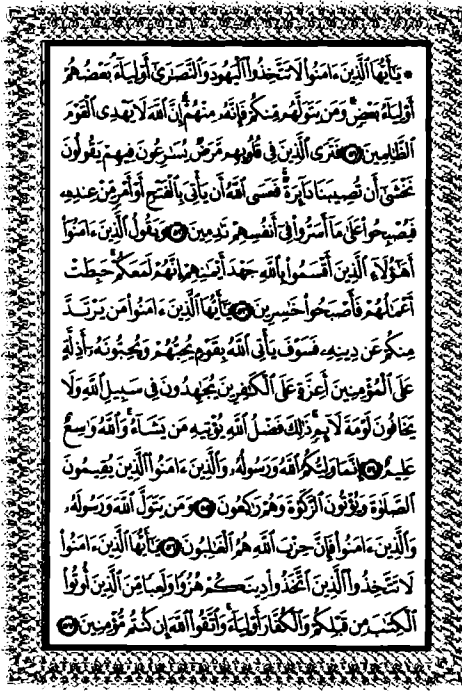 ۞ يَـٰٓأَيُّهَا ٱلَّذِينَ ءَامَنُوا۟ لَا تَتَّخِذُوا۟ ٱلْيَهُودَ وَٱلنَّصَـٰرَىٰٓ أَوْلِيَآءَ ۘ بَعْضُهُمْ
أَوْلِيَآءُ بَعْضٍ ۚ وَمَن يَتَوَلَّهُم مِّنكُمْ فَإِنَّهُۥ مِنْهُمْ ۗ إِنَّ ٱللَّهَ لَا يَهْدِى ٱلْقَوْمَ
ٱلظَّـٰلِمِينَ ٥١ فَتَرَى ٱلَّذِينَ فِى قُلُوبِهِم مَّرَضٌ يُسَـٰرِعُونَ فِيهِمْ يَقُولُونَ
نَخْشَىٰٓ أَن تُصِيبَنَا دَآئِرَةٌ ۚ فَعَسَى ٱللَّهُ أَن يَأْتِىَ بِٱلْفَتْحِ أَوْ أَمْرٍ مِّنْ عِندِهِۦ
فَيُصْبِحُوا۟ عَلَىٰ مَآ أَسَرُّوا۟ فِىٓ أَنفُسِهِمْ نَـٰدِمِينَ ٥٢ وَيَقُولُ ٱلَّذِينَ ءَامَنُوٓا۟
أَهَـٰٓؤُلَآءِ ٱلَّذِينَ أَقْسَمُوا۟ بِٱللَّهِ جَهْدَ أَيْمَـٰنِهِمْ ۙ إِنَّهُمْ لَمَعَكُمْ ۚ حَبِطَتْ
أَعْمَـٰلُهُمْ فَأَصْبَحُوا۟ خَـٰسِرِينَ ٥٣ يَـٰٓأَيُّهَا ٱلَّذِينَ ءَامَنُوا۟ مَن يَرْتَدَّ
مِنكُمْ عَن دِينِهِۦ فَسَوْفَ يَأْتِى ٱللَّهُ بِقَوْمٍ يُحِبُّهُمْ وَيُحِبُّونَهُۥٓ أَذِلَّةٍ
عَلَى ٱلْمُؤْمِنِينَ أَعِزَّةٍ عَلَى ٱلْكَـٰفِرِينَ يُجَـٰهِدُونَ فِى سَبِيلِ ٱللَّهِ وَلَا
يَخَافُونَ لَوْمَةَ لَآئِمٍ ۚ ذَٰلِكَ فَضْلُ ٱللَّهِ يُؤْتِيهِ مَن يَشَآءُ ۚ وَٱللَّهُ وَٰسِعٌ
عَلِيمٌ ٥٤ إِنَّمَا وَلِيُّكُمُ ٱللَّهُ وَرَسُولُهُۥ وَٱلَّذِينَ ءَامَنُوا۟ ٱلَّذِينَ يُقِيمُونَ
ٱلصَّلَوٰةَ وَيُؤْتُونَ ٱلزَّكَوٰةَ وَهُمْ رَٰكِعُونَ ٥٥ وَمَن يَتَوَلَّ ٱللَّهَ وَرَسُولَهُۥ
وَٱلَّذِينَ ءَامَنُوا۟ فَإِنَّ حِزْبَ ٱللَّهِ هُمُ ٱلْغَـٰلِبُونَ ٥٦ يَـٰٓأَيُّهَا ٱلَّذِينَ ءَامَنُوا۟
لَا تَتَّخِذُوا۟ ٱلَّذِينَ ٱتَّخَذُوا۟ دِينَكُمْ هُزُوًا وَلَعِبًا مِّنَ ٱلَّذِينَ أُوتُوا۟
ٱلْكِتَـٰبَ مِن قَبْلِكُمْ وَٱلْكُفَّارَ أَوْلِيَآءَ ۚ وَٱتَّقُوا۟ ٱللَّهَ إِن كُنتُم مُّؤْمِنِينَ ٥٧